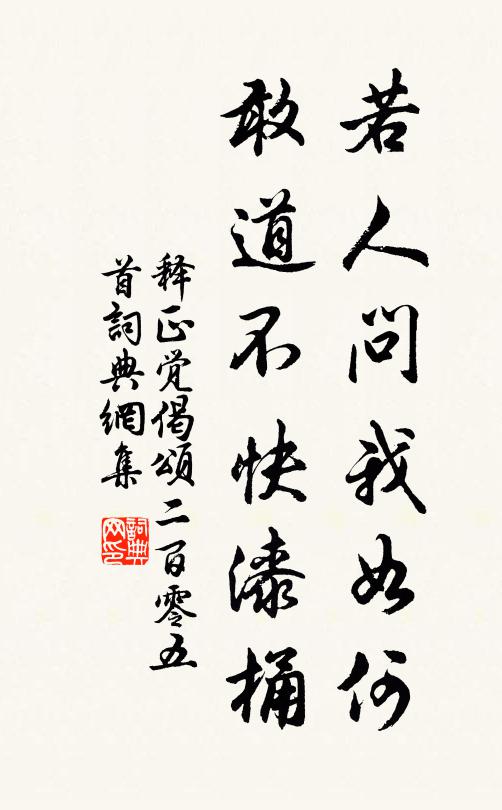 若人問我如何
敢道不快漆桶
释正觉偈頌二百零五
首詞典網集
詞典
网印